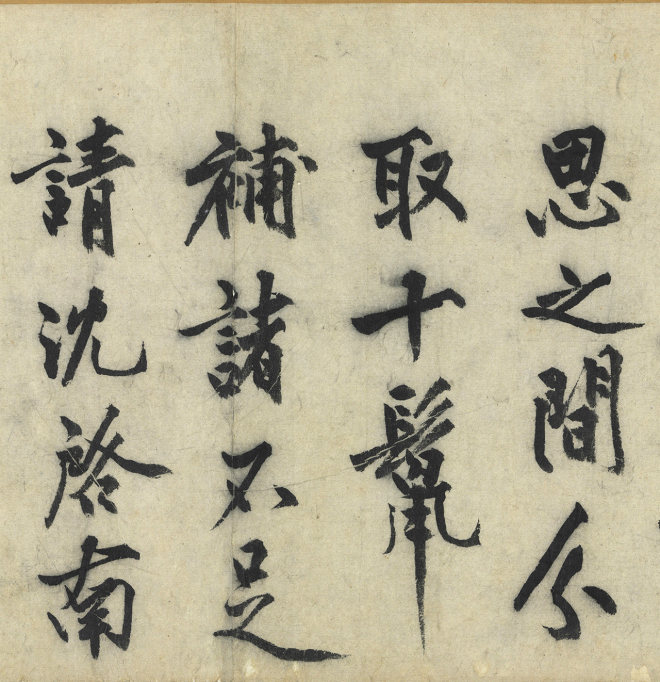 思之間分
取十鬣
補諸不足
請沈啓南